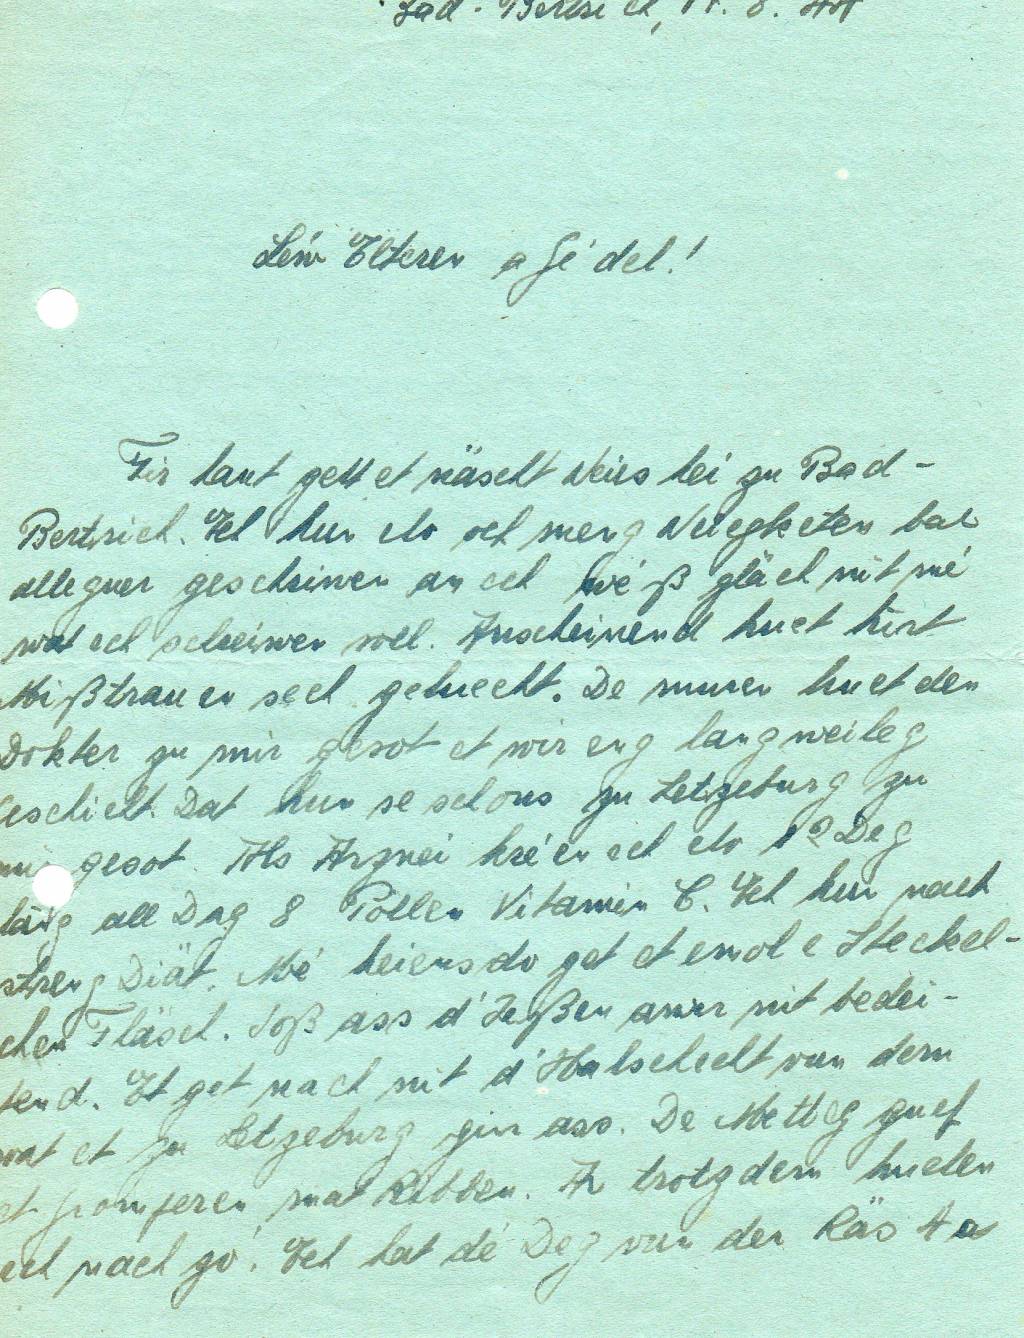 Bad-Bertrich, 8. 44
Léiw Elteren a Jé'del!
Fir haut gett et näscht Neies hei zu Bad-
Bertrich. Ech hun elo och meng Neiegketen bal
alleguer geschriwen an ech wé'ß gläch nit mé
wat ech schreiwen soll. Anscheinend huet hirt
Mißtrauen sech geluecht. De muren huet den
Dokter zu mir gesot et wir eng langweileg
Geschicht. Dat hun se schons zu Letzeburg zu
mir gesot. Als Arznei kré'en ech elo Deg
läng all Dag 8 Pöllen Vitamin C. Ech hun nach
streng Diät. Mé heiensdo get et emol e Steckel-
chen Fläsch. Soß ass d'Ießen awer nit bedei-
tend. Et get nach nit d'Halschecht vun dem
wat et zu Letzeburg gin ass. De Metteg guef
et Gromperen mat Ribben. An trotzdem hueten
ech nach go'. Ech hat dé Deg vun der Räs 4